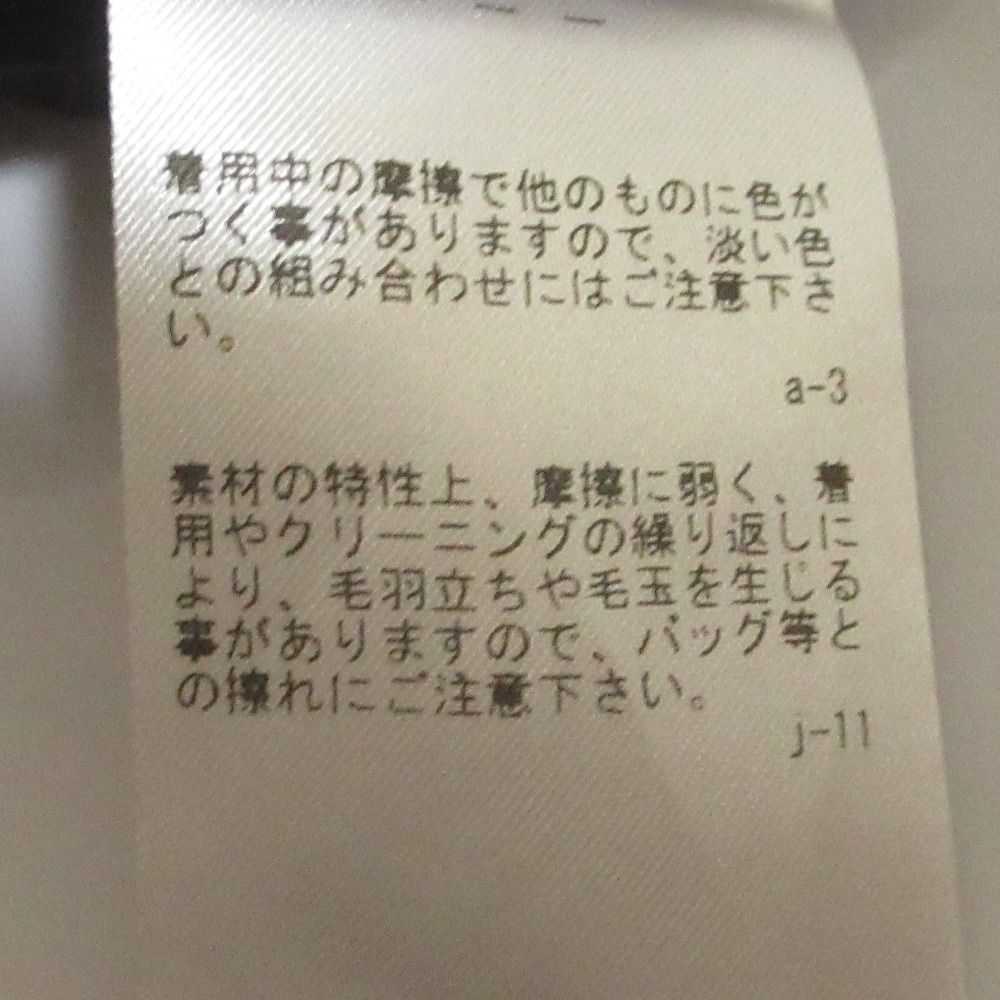 着用中の摩擦で他のものに色が
つく事がありますので、淡い色
との組み合わせにはご注意下さ
い。
a-3
素材の特性上、摩擦に弱く、着
用やクリーニングの繰り返しに
より、毛羽立ちや毛玉を生じる
事がありますので、バッグ等と
の擦れにご注意下さい。
j-11